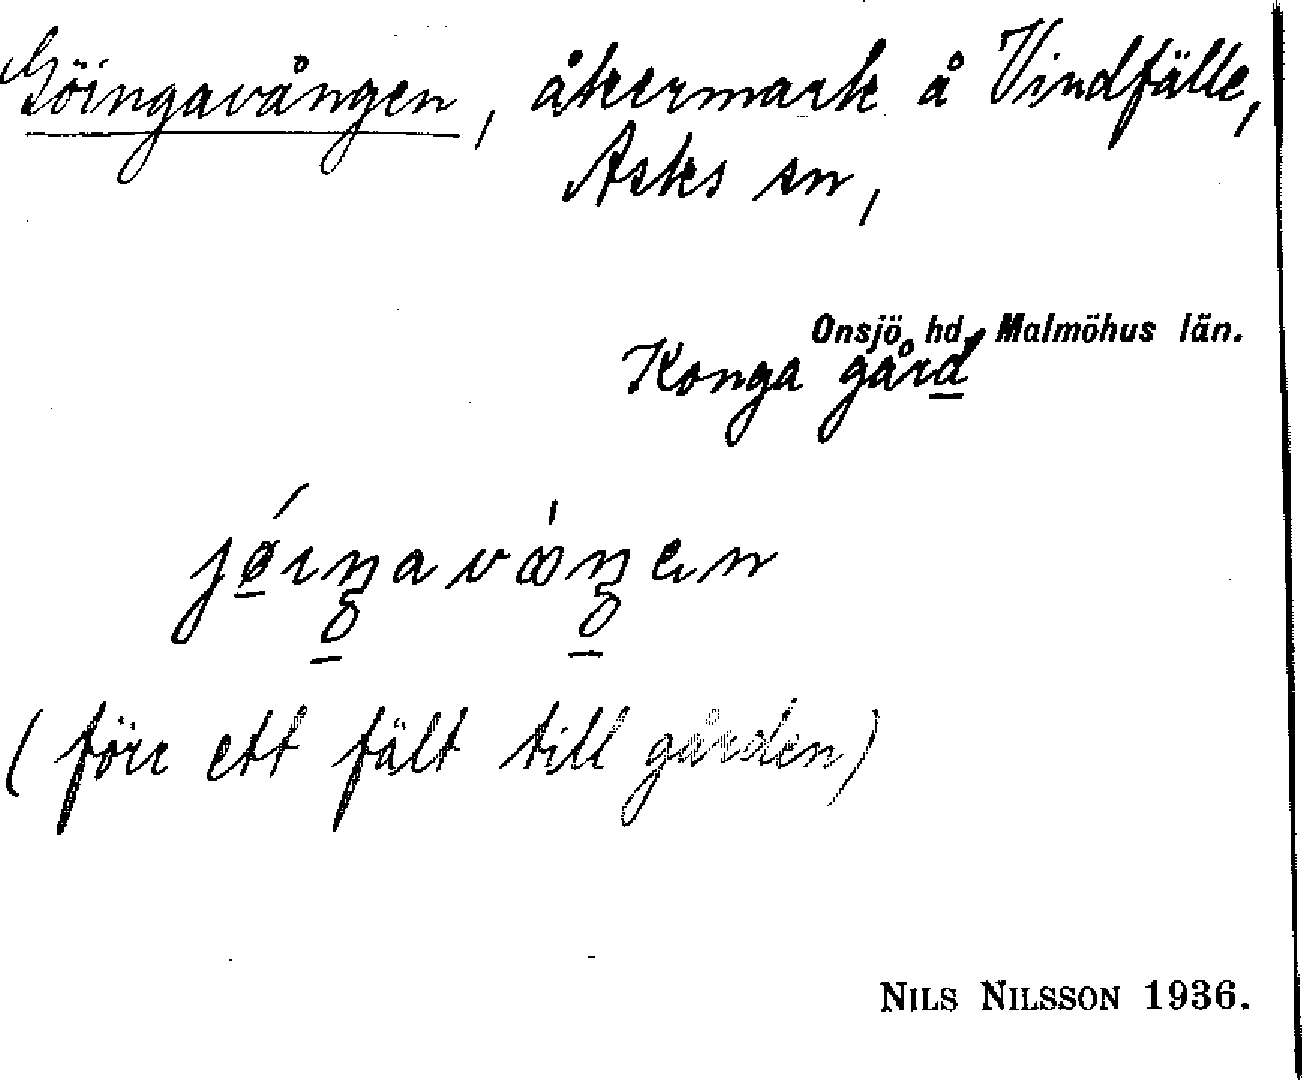 Göingavången, åkermark å Vindfälle,
Asks sn,
Onsjö hd, Malmöhus län.
Konga gård
jǿ̱ıŋavάŋen
(förr ett fält till gården)
NILS NILSSON 1936.